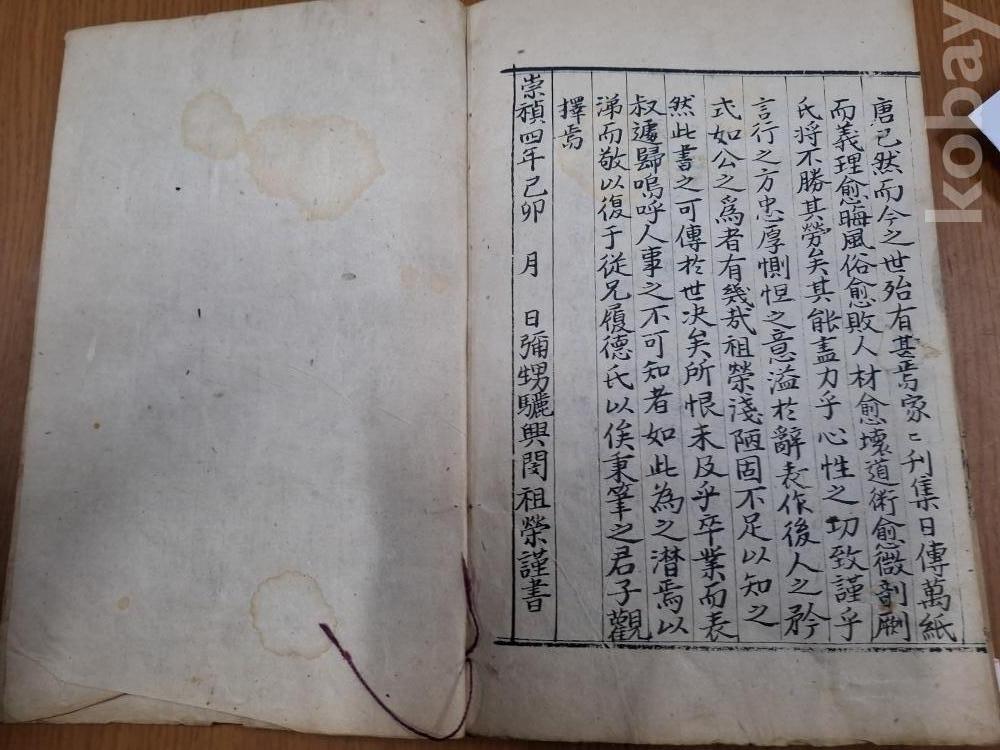 唐已然而今之世殆有甚焉家〻刊集日傳萬紙
而義理愈晦風俗愈敗人材愈壞道術愈微剞劂
氏将不勝其勞矣其能盡力乎心性之切致謹乎
言行之方忠厚惻怛之意溢於辭表作後人之矜
式如公之爲者有幾哉祖榮淺陋固不足以知之
然此書之可傳於世决矣所恨未及乎卒業而表
叔遽歸嗚呼人事之不可知者如此為之潸焉以
涕而敬以復于従兄履德氏以俟秉筆之君子觀
擇焉
崇禎四年己卯 月 日彌甥驪興閔祖榮謹書
kobay